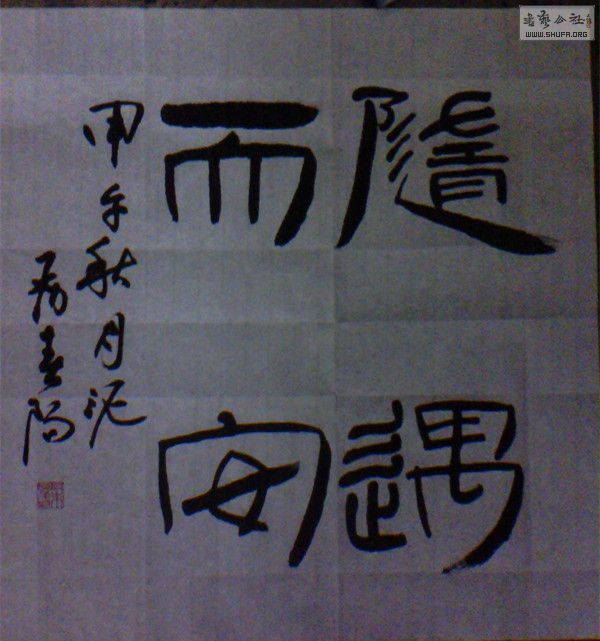 隨遇
而安
甲午秋月
書藝公社
WWW.SHUFA.ORG